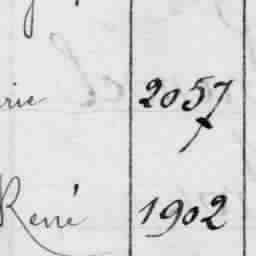 rie 2057
René 1902